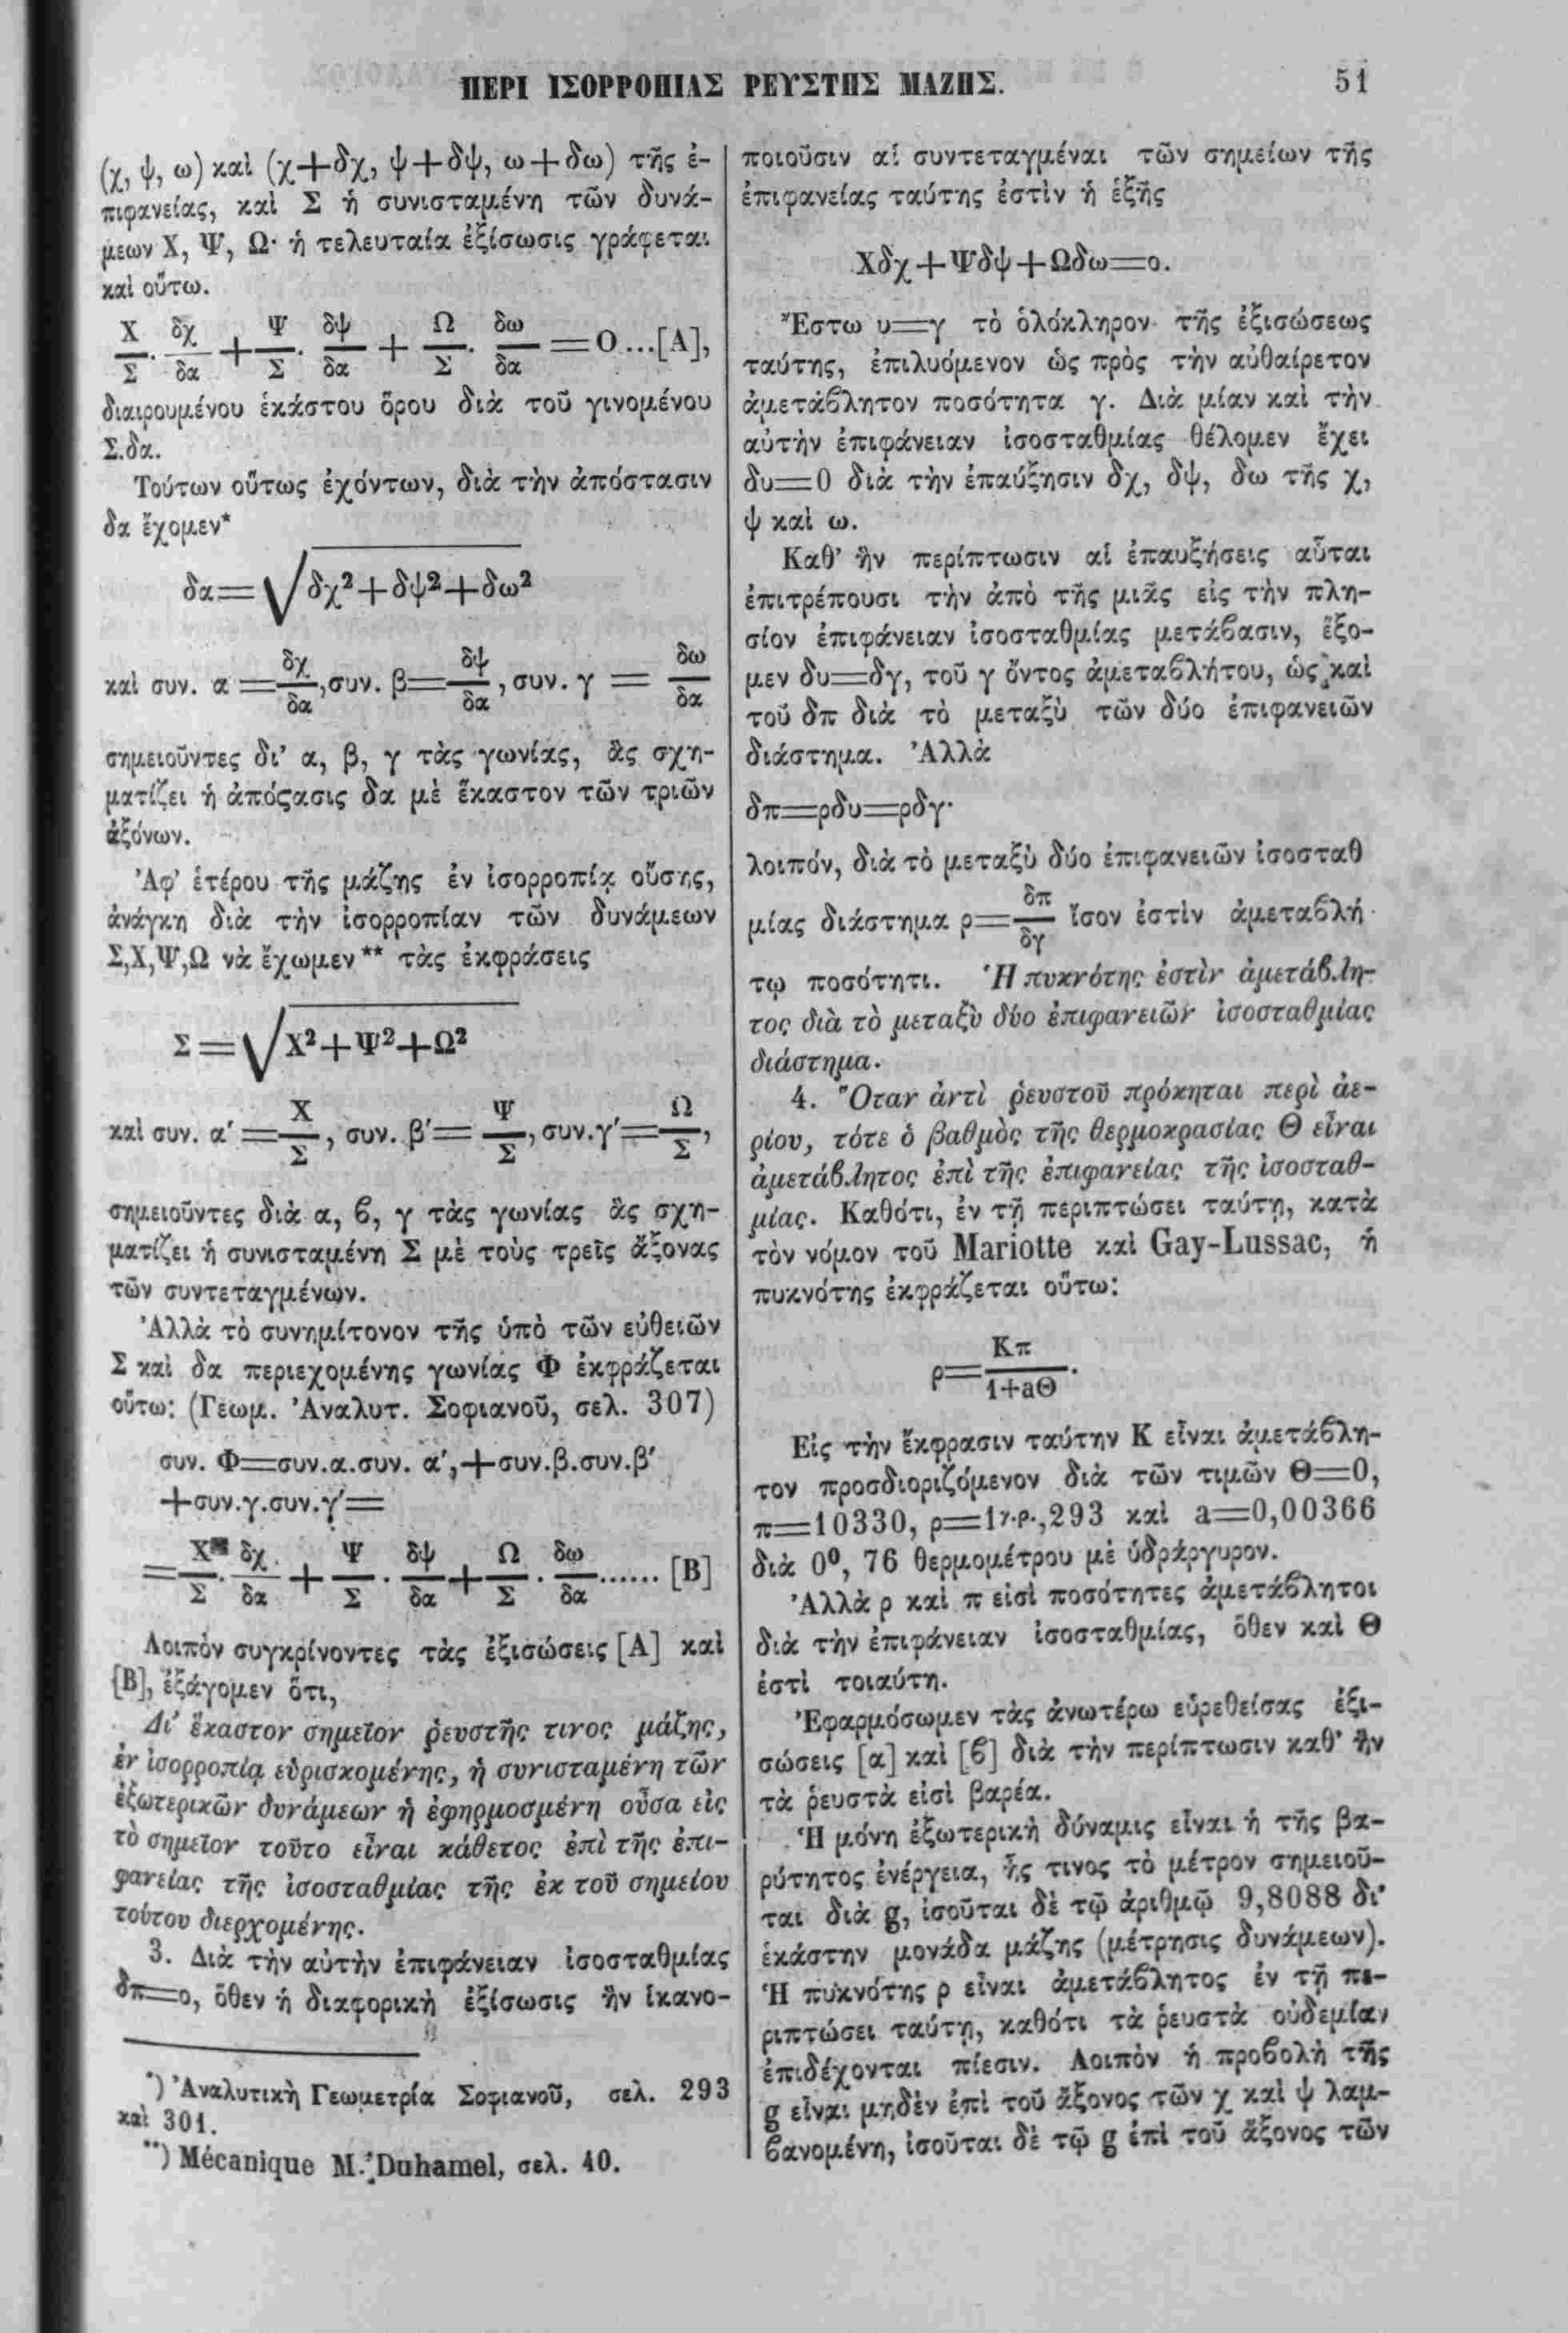 ΠΕΡΙ ΙΣΟΡΡΟΠΙΑΣ ΡΕΥΣΤΗΣ ΜΑΖΗΣ.
51
(χ, ψ, ω) καὶ (χ+δχ, ψ+δψ, ω+δω) τῆς ἐ-
πιφανείας, καὶ Σ ἡ συνισταμένη τῶν δυνά-
μεων Χ, Ψ, Ω· ἡ τελευταία ἐξίσωσις γράφεται
καὶ οὕτω.
Χ/Σ · δχ/δα + Ψ/Σ · δψ/δα + Ω/Σ · δω/δα =Ο...[Α],
διαιρουμένου ἑκάστου ὅρου διὰ τοῦ γινομένου
Σ.δα.
Τούτων οὕτως ἐχόντων, διὰ τὴν ἀπόστασιν
δα ἔχομεν*
δα=√δχ²+δψ²+δω²
καὶ συν. α = δχ/δα, συν. β= δψ/δα, συν. γ = δω/δα
σημειοῦντες δι' α, β, γ τὰς γωνίας, ἃς σχη-
ματίζει ἡ ἀπόςασις δα μὲ ἕκαστον τῶν τριῶν
ἀξόνων.
Ἀφ' ἑτέρου τῆς μάζης ἐν ἰσορροπίᾳ οὔσης,
ἀνάγκη διὰ τὴν ἰσορροπίαν τῶν δυνάμεων
Σ,Χ,Ψ,Ω νὰ ἔχωμεν** τὰς ἐκφράσεις
Σ=√Χ²+Ψ²+Ω²
καὶ συν. α'= Χ/Σ, συν. β'= Ψ/Σ, συν.γ'= Ω/Σ,
σημειοῦντες διὰ α, ϐ, γ τὰς γωνίας ἃς σχη-
ματίζει ἡ συνισταμένη Σ μὲ τοὺς τρεῖς ἄξονας
τῶν συντεταγμένων.
Ἀλλὰ τὸ συνημίτονον τῆς ὑπὸ τῶν εὐθειῶν
Σ καὶ δα περιεχομένης γωνίας Φ ἐκφράζεται
οὕτω: (Γεωμ. Ἀναλυτ. Σοφιανοῦ, σελ. 307)
συν. Φ=συν.α.συν. α',+συν.β.συν.β'
+συν.γ.συν.γ'=
= Χ/Σ · δχ/δα + Ψ/Σ · δψ/δα + Ω/Σ · δω/δα ...... [Β]
Λοιπὸν συγκρίνοντες τὰς ἐξισώσεις [Α] καὶ
[Β], ἐξάγομεν ὅτι,
Δι' ἕκαστον σημεῖον ῥευστῆς τινος μάζης,
ἐν ἰσορροπίᾳ εὑρισκομένης, ἡ συνισταμένη τῶν
ἐξωτερικῶν δυνάμεων ἡ ἐφηρμοσμένη οὖσα εἰς
τὸ σημεῖον τοῦτο εἶναι κάθετος ἐπὶ τῆς ἐπι-
φανείας τῆς ἰσοσταθμίας τῆς ἐκ τοῦ σημείου
τούτου διερχομένης.
3. Διὰ τὴν αὐτὴν ἐπιφάνειαν ἰσοσταθμίας
δπ=ο, ὅθεν ἡ διαφορικὴ ἐξίσωσις ἣν ἱκανο-
*) Ἀναλυτικὴ Γεωμετρία Σοφιανοῦ, σελ. 293
καὶ 301.
**) Mécanique M. Duhamel, σελ. 40.
ποιοῦσιν αἱ συντεταγμέναι τῶν σημείων τῆς
ἐπιφανείας ταύτης ἐστὶν ἡ ἑξῆς
Χδχ+Ψδψ+Ωδω=ο.
Ἔστω υ=γ τὸ ὁλόκληρον τῆς ἐξισώσεως
ταύτης, ἐπιλυόμενον ὡς πρὸς τὴν αὐθαίρετον
ἀμετάϐλητον ποσότητα γ. Διὰ μίαν καὶ τὴν
αὐτὴν ἐπιφάνειαν ἰσοσταθμίας θέλομεν ἔχει
δυ=0 διὰ τὴν ἐπαύξησιν δχ, δψ, δω τῆς χ,
ψ καὶ ω.
Καθ' ἣν περίπτωσιν αἱ ἐπαυξήσεις αὗται
ἐπιτρέπουσι τὴν ἀπὸ τῆς μιᾶς εἰς τὴν πλη-
σίον ἐπιφάνειαν ἰσοσταθμίας μετάϐασιν, ἕξο-
μεν δυ=δγ, τοῦ γ ὄντος ἀμεταϐλήτου, ὡς καὶ
τοῦ δπ διὰ τὸ μεταξὺ τῶν δύο ἐπιφανειῶν
διάστημα. Ἀλλὰ
δπ=ρδυ=ρδγ·
λοιπόν, διὰ τὸ μεταξὺ δύο ἐπιφανειῶν ἰσοσταθ
μίας διάστημα ρ= δπ/δγ ἴσον ἐστὶν ἀμεταϐλή
τῳ ποσότητι. Ἡ πυκνότης ἐστὶν ἀμετάϐλη-
τος διὰ τὸ μεταξὺ δύο ἐπιφανειῶν ἰσοσταθμίας
διάστημα.
4. Ὅταν ἀντὶ ῥευστοῦ πρόκηται περὶ ἀε-
ρίου, τότε ὁ βαθμὸς τῆς θερμοκρασίας Θ εἶναι
ἀμετάϐλητος ἐπὶ τῆς ἐπιφανείας τῆς ἰσοσταθ-
μίας. Καθότι, ἐν τῇ περιπτώσει ταύτῃ, κατὰ
τὸν νόμον τοῦ Mariotte καὶ Gay-Lussac, ἡ
πυκνότης ἐκφράζεται οὕτω:
ρ= Κπ/1+aΘ.
Εἰς τὴν ἔκφρασιν ταύτην Κ εἶναι ἀμετάϐλη-
τον προσδιοριζόμενον διὰ τῶν τιμῶν Θ=0,
π=10330, ρ=1γ.ρ.,293 καὶ a=0,00366
διὰ 0⁰, 76 θερμομέτρου μὲ ὑδράργυρον.
Ἀλλὰ ρ καὶ π εἰσὶ ποσότητες ἀμετάϐλητοι
διὰ τὴν ἐπιφάνειαν ἰσοσταθμίας, ὅθεν καὶ Θ
ἐστὶ τοιαύτη.
Ἐφαρμόσωμεν τὰς ἀνωτέρω εὑρεθείσας ἐξι-
σώσεις [α] καὶ [ϐ] διὰ τὴν περίπτωσιν καθ' ἣν
τὰ ῥευστὰ εἰσὶ βαρέα.
Ἡ μόνη ἐξωτερικὴ δύναμις εἶναι ἡ τῆς βα-
ρύτητος ἐνέργεια, ἧς τινος τὸ μέτρον σημειοῦ-
ται διὰ g, ἰσοῦται δὲ τῷ ἀριθμῷ 9,8088 δι'
ἑκάστην μονάδα μάζης (μέτρησις δυνάμεων).
Ἡ πυκνότης ρ εἶναι ἀμετάϐλητος ἐν τῇ πε-
ριπτώσει ταύτῃ, καθότι τὰ ῥευστὰ οὐδεμίαν
ἐπιδέχονται πίεσιν. Λοιπὸν ἡ προϐολὴ τῆς
g εἶναι μηδὲν ἐπὶ τοῦ ἄξονος τῶν χ καὶ ψ λαμ-
ϐανομένη, ἰσοῦται δὲ τῷ g ἐπὶ τοῦ ἄξονος τῶν